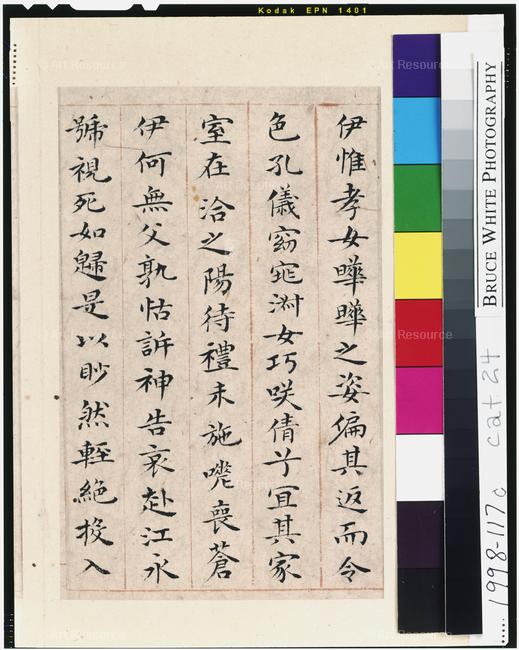 Kodak EPN 1401
伊惟孝女曄曄之姿偏其返而令
色孔儀窈窕淑女巧咲倩兮冝其家
室在洽之陽待禮未施嗟喪蒼
伊何無父孰怙訴神告哀赴江永
號視死如歸是以眇然輕絕投入
BRUCE WHITE PHOTOGRAPHY
1998-117c cat 24
© Art Resource